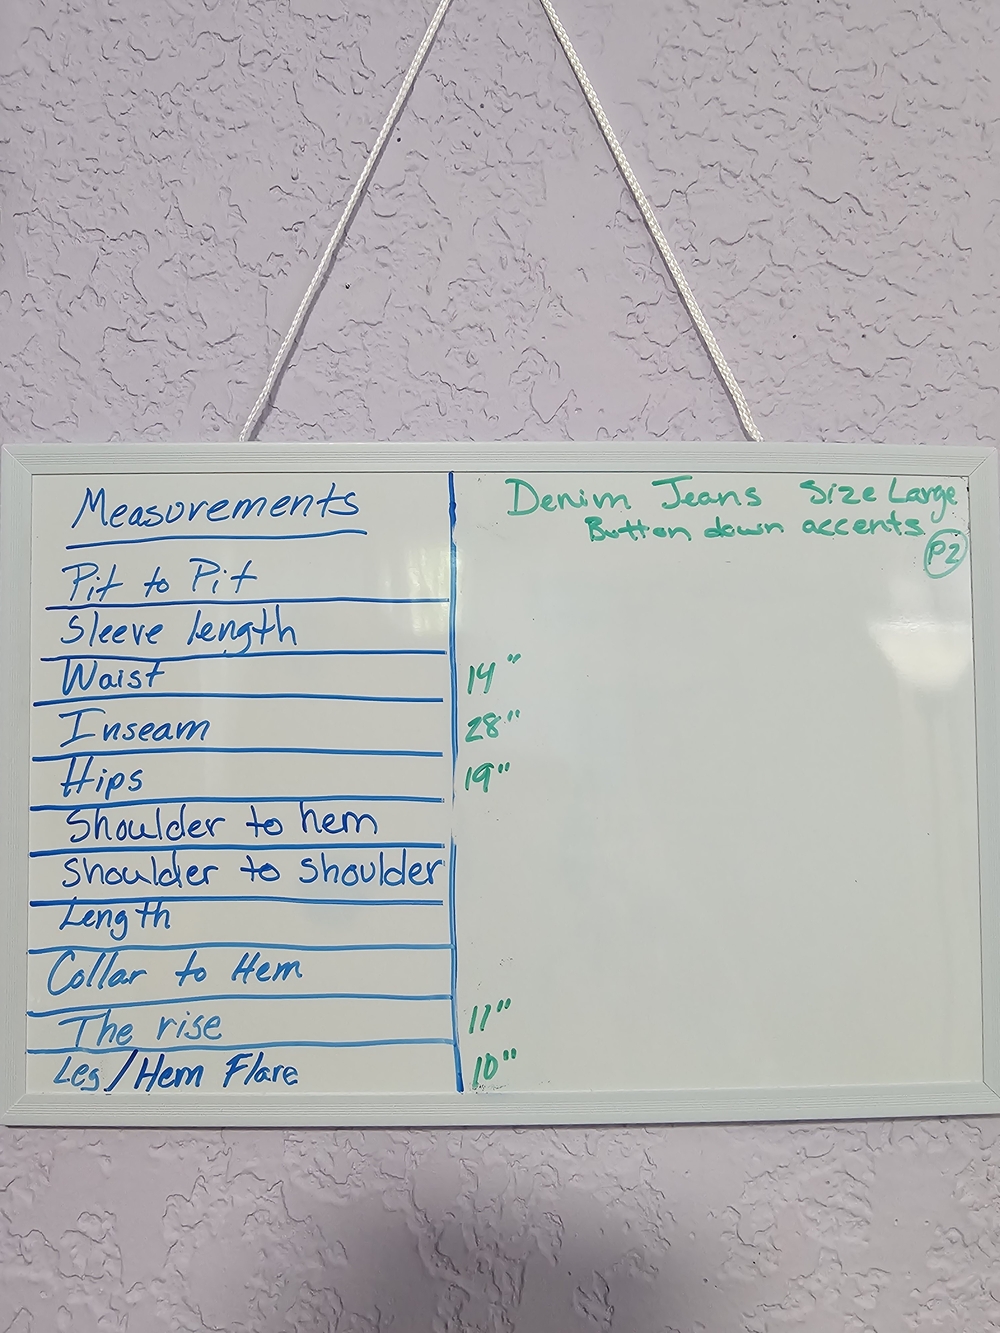 Measurements
Denim Jeans Size Large
Button down accents
P2
Pit to Pit
Sleeve length
Waist 14"
Inseam 28"
Hips 19"
Shoulder to hem
Shoulder to shoulder
Length
Collar to Hem
The rise 11"
Leg/Hem Flare 10"